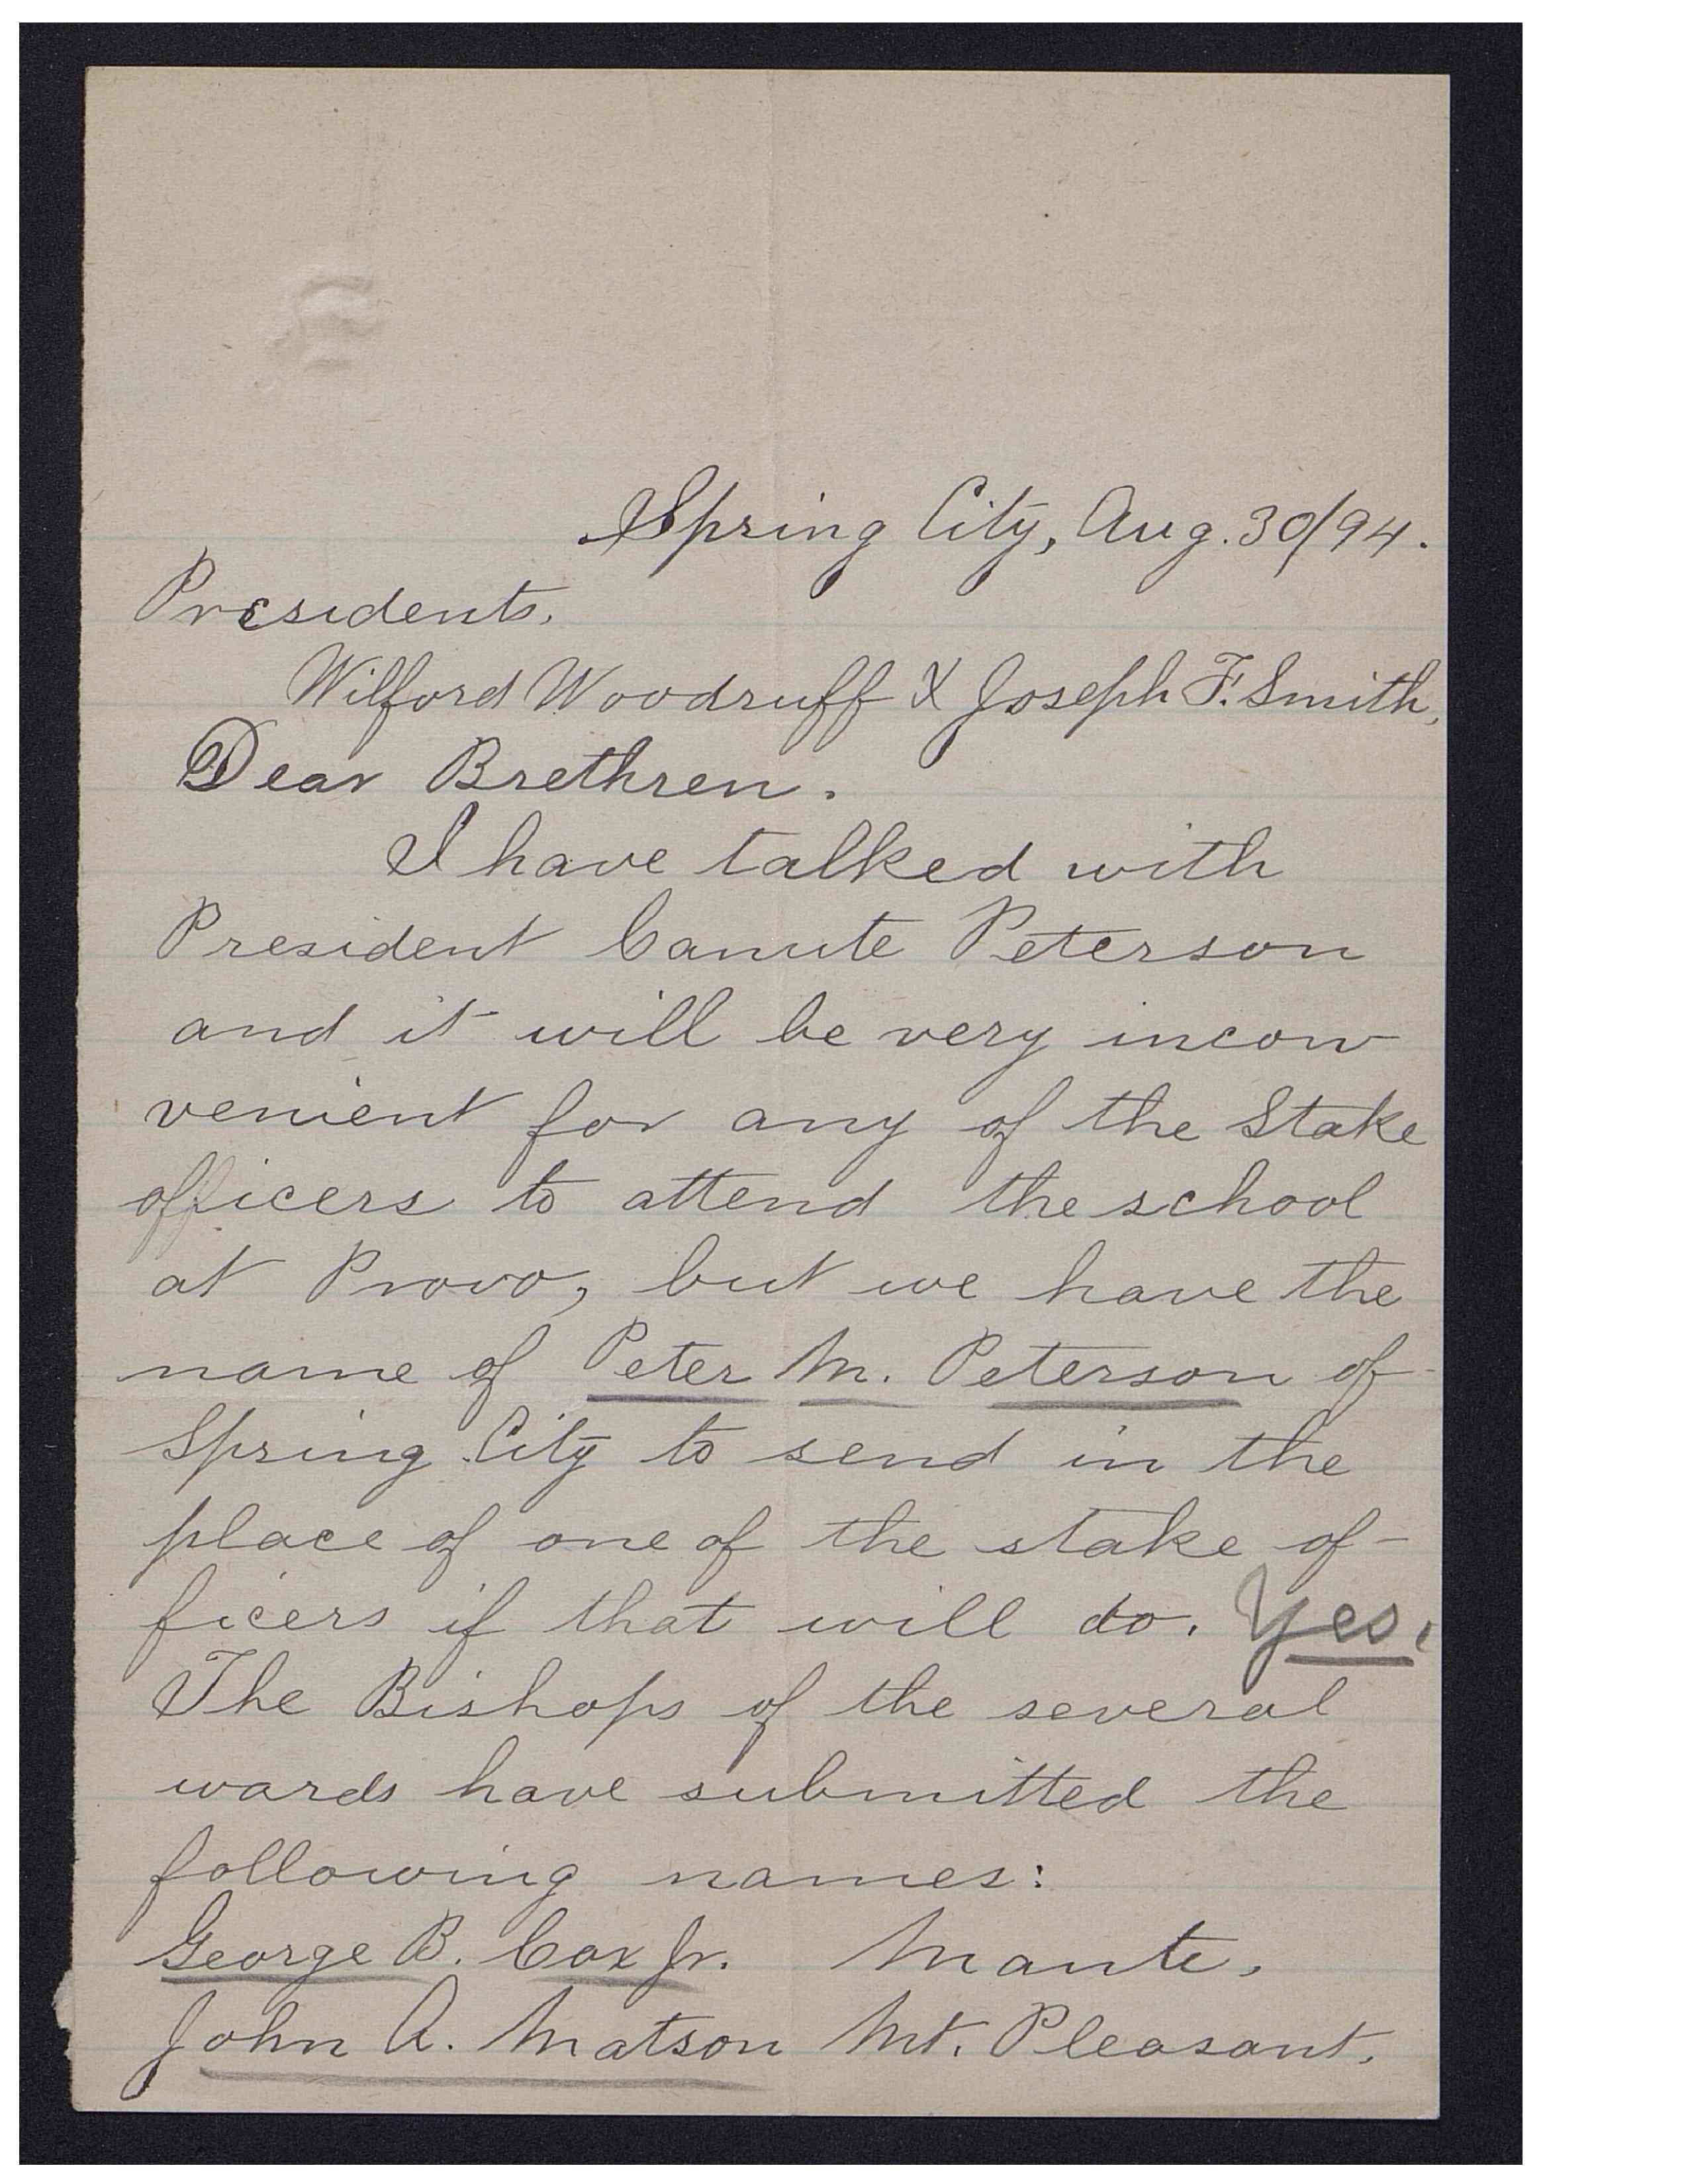 Spring City, Aug. 30/94.
Presidents.
Wilford Woodruff & Joseph F. Smith,
Dear Brethren.
I have talked with
President Canute Peterson
and it will be very incon
venient for any of the Stake
officers to attend the school
at Provo, but we have the
name of Peter M. Peterson of
Spring City to send in the
place of one of the stake of-
ficers if that will do. Yes.
The Bishops of the several
wards have submitted the
following names:
George B. Cox Jr. Mante.
John A. Matson Mt. Pleasant.